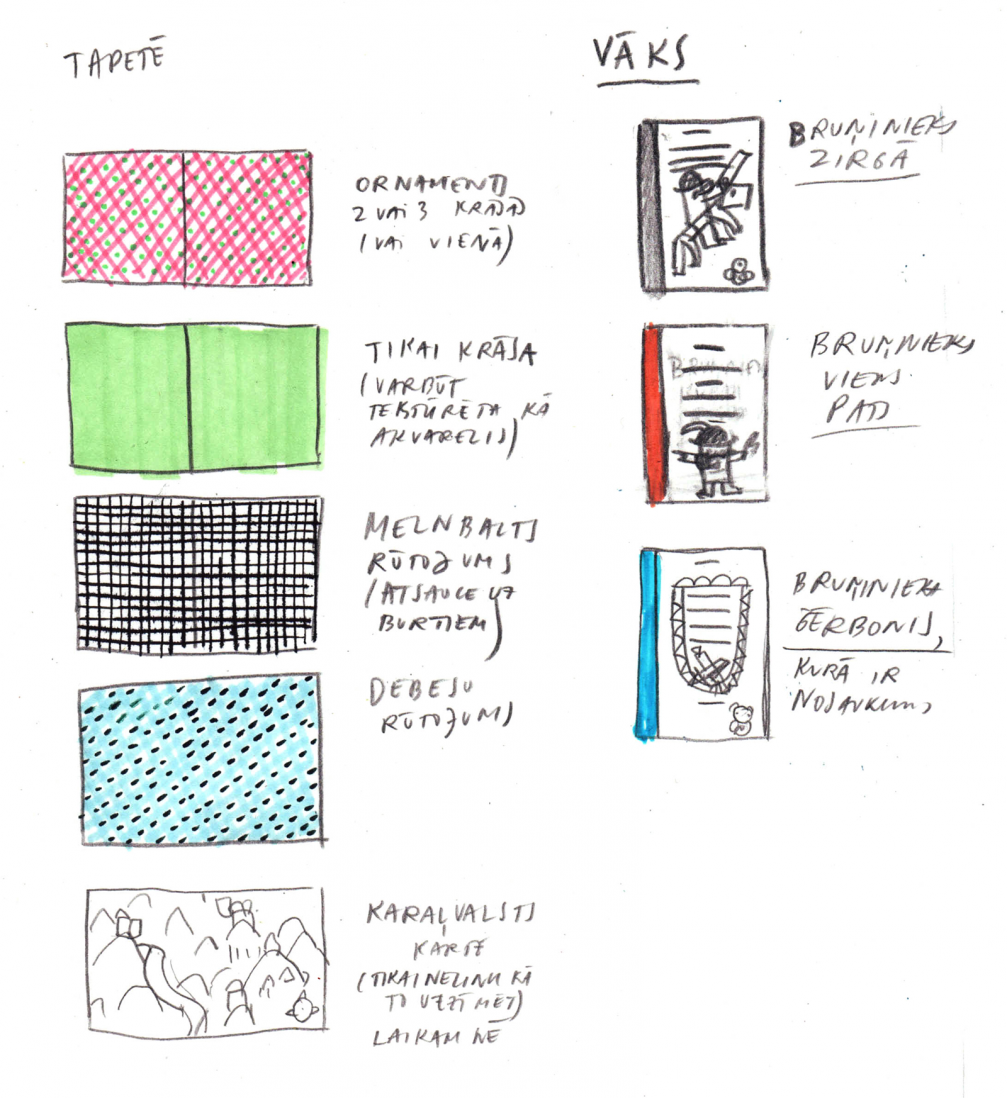 TAPETĒ
ORNAMENTS
2 VAI 3 KRĀSĀS
(VAI VIENĀ)
TIKAI KRĀSA
(VARBŪT
TEKSTŪRĒTA KĀ
AKVARELIS)
MELNBALTS
RŪTOJUMS
(ATSAUCE UZ
BURTIEM)
DEBESU
RŪTOJUMS
KARAĻVALSTS
KARTE
(TIKAI NEZINU KĀ
TO UZZĪMĒT)
LAIKAM NĒ
VĀKS
BRUŅINIEKS
ZIRGĀ
BRUŅINIEKS
VIENS
PATS
BRUŅINIEKA
ĢERBONIS,
KURĀ IR
NOSAUKUMS